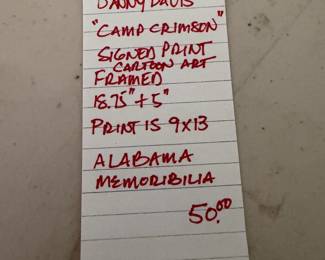 DANNY DAVIS
"CAMP CRIMSON"
SIGNED PRINT
CARTOON ART
FRAMED
18.75" + 5"
PRINT IS 9x13
ALABAMA
MEMORIBILIA
50.00